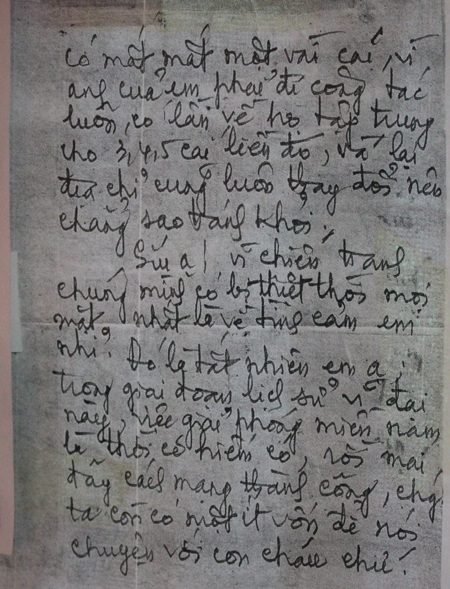 có mất mát một vài cái, vì
anh của em phải đi công tác
luôn, có lần về họ tập trung
cho 3, 4, 5 cái liền đó, vả lại
địa chỉ cũng luôn thay đổi nên
chẳng sao tránh khỏi.
Sửu ạ! vì chiến tranh
chúng mình có bị thiệt thòi mọi
mặt, nhất là về tình cảm em
nhỉ? Đó là tất nhiên em ạ,
trong giai đoạn lịch sử vĩ đại
này, việc giải phóng miền nam
là thời cơ hiếm có, rồi mai
đây cách mạng thành công, chg
ta còn có một ít vốn để nói
chuyện với con cháu chứ!